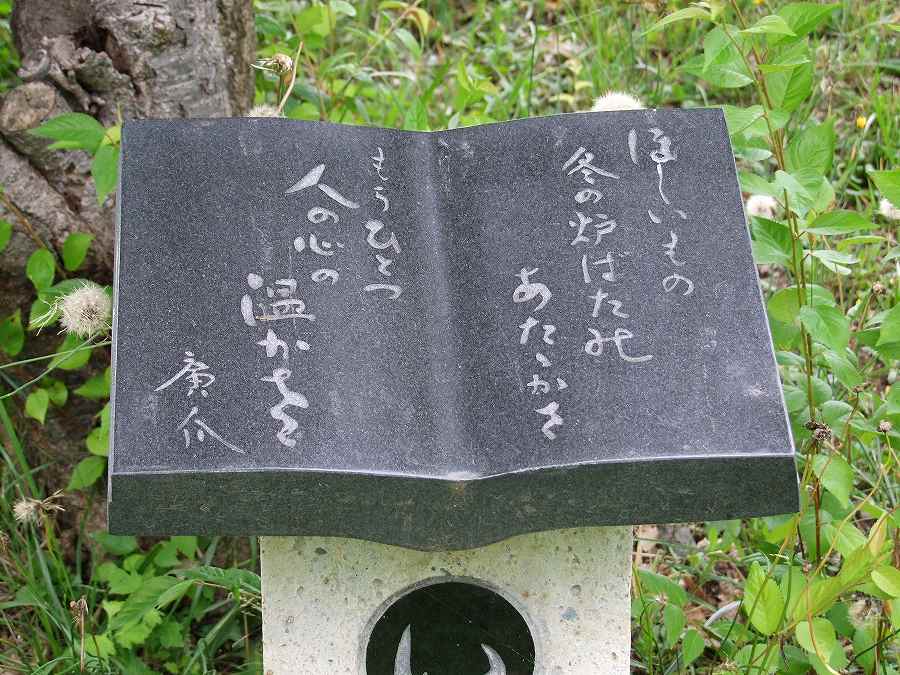 ほしいもの
冬の炉ばたの
あたゝかさ
もうひとつ
人の心の
温かさ
廣爪